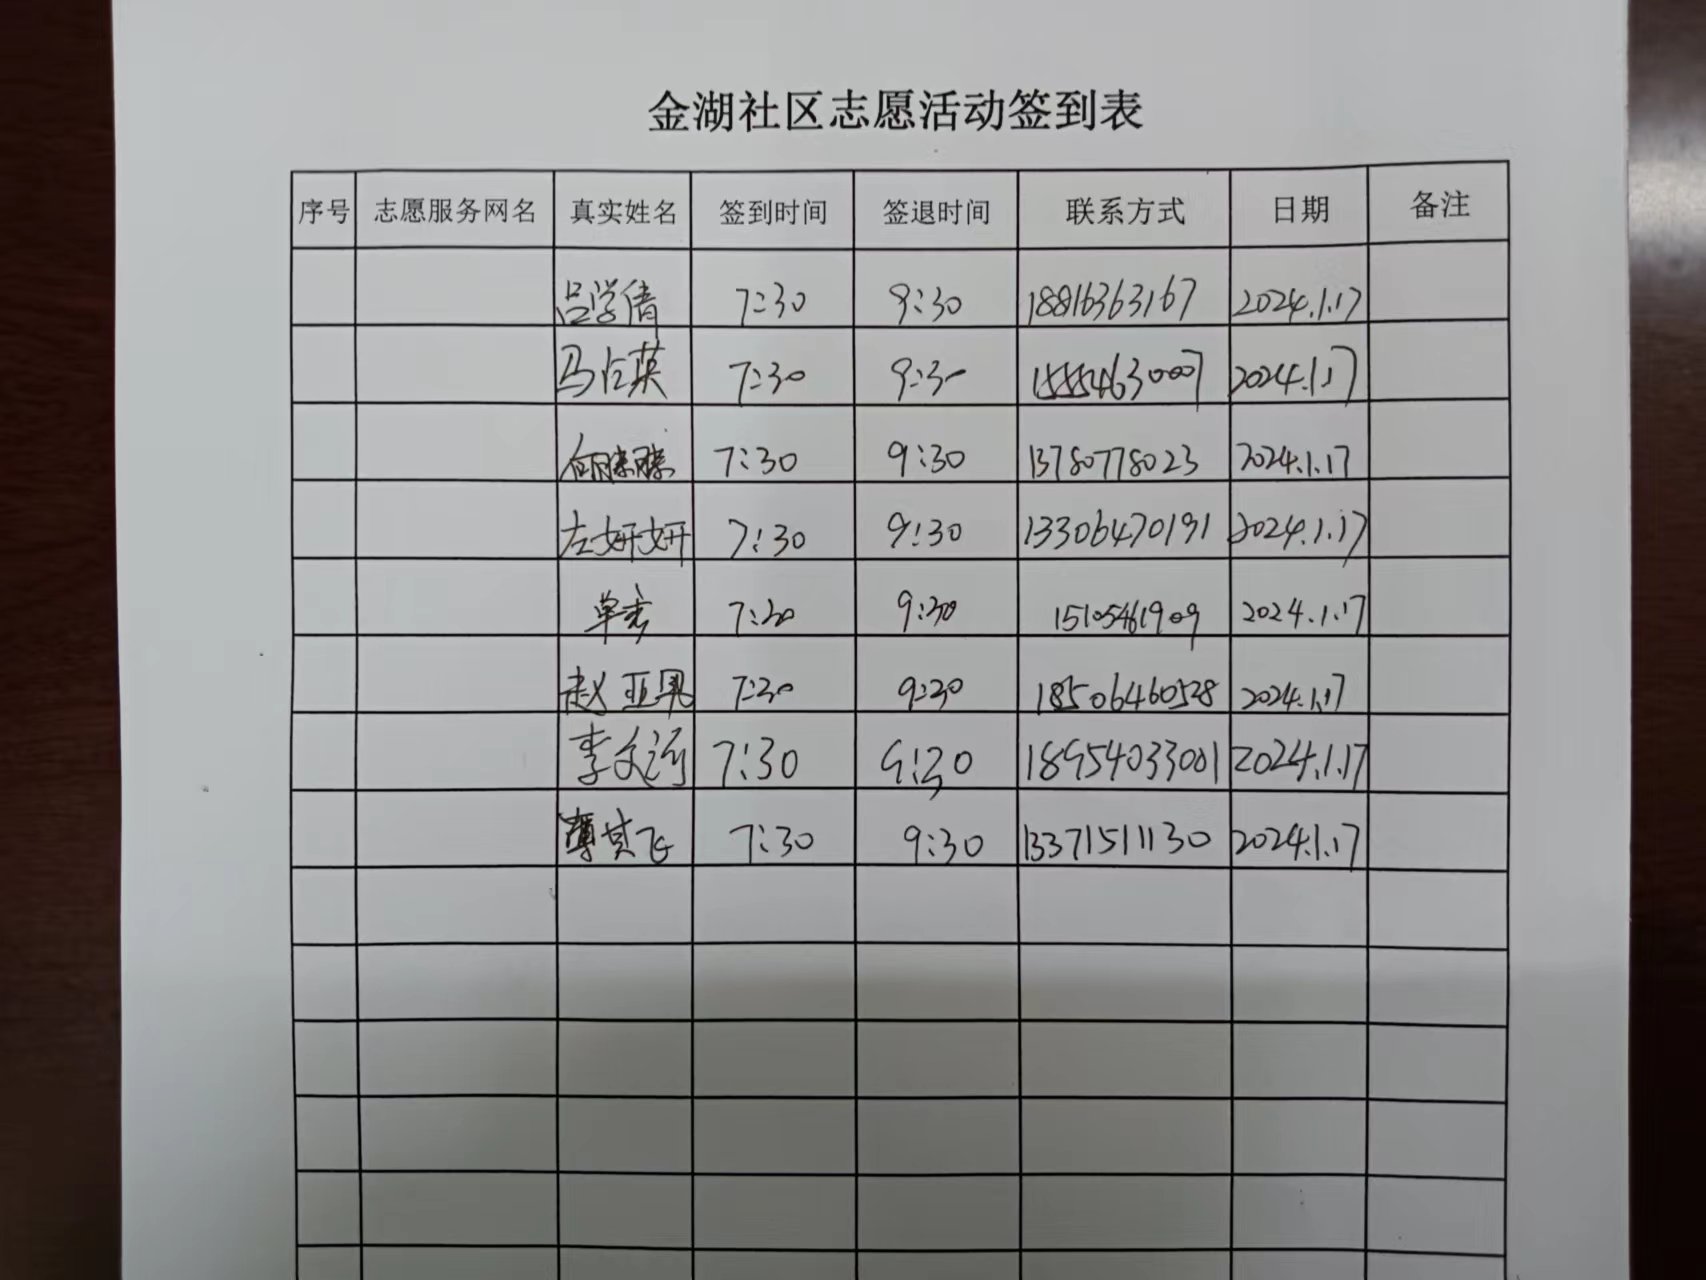 金湖社区志愿活动签到表
序号 志愿服务网名 真实姓名 签到时间 签退时间 联系方式 日期 备注
吕学倩 7:30 9:30 18816363167 2024.1.17
马占英 7:30 9:30 15554630007 2024.1.17
何腾腾 7:30 9:30 13780778023 2024.1.17
左妍妍 7:30 9:30 13306470191 2024.1.17
单秀 7:30 9:30 15105461909 2024.1.17
赵亚 7:30 9:30 18506460528 2024.1.17
李文河 7:30 9:30 18954033001 2024.1.17
薄其飞 7:30 9:30 13371511130 2024.1.17